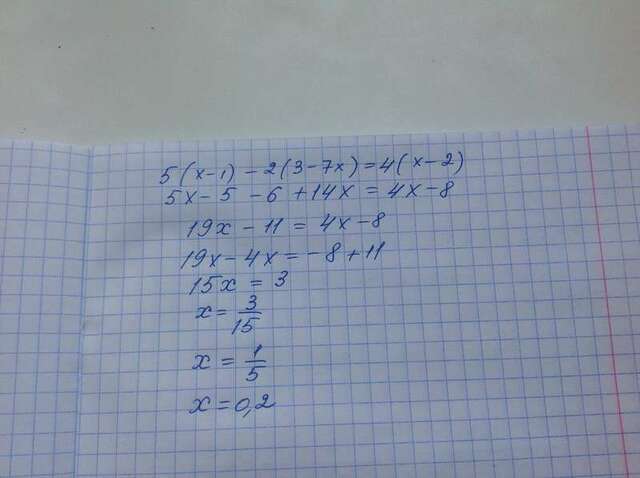 5(x-1)-2(3-7x)=4(x-2)
5x-5-6+14x=4x-8
19x-11=4x-8
19x-4x=-8+11
15x=3
x=3/15
x=1/5
x=0,2